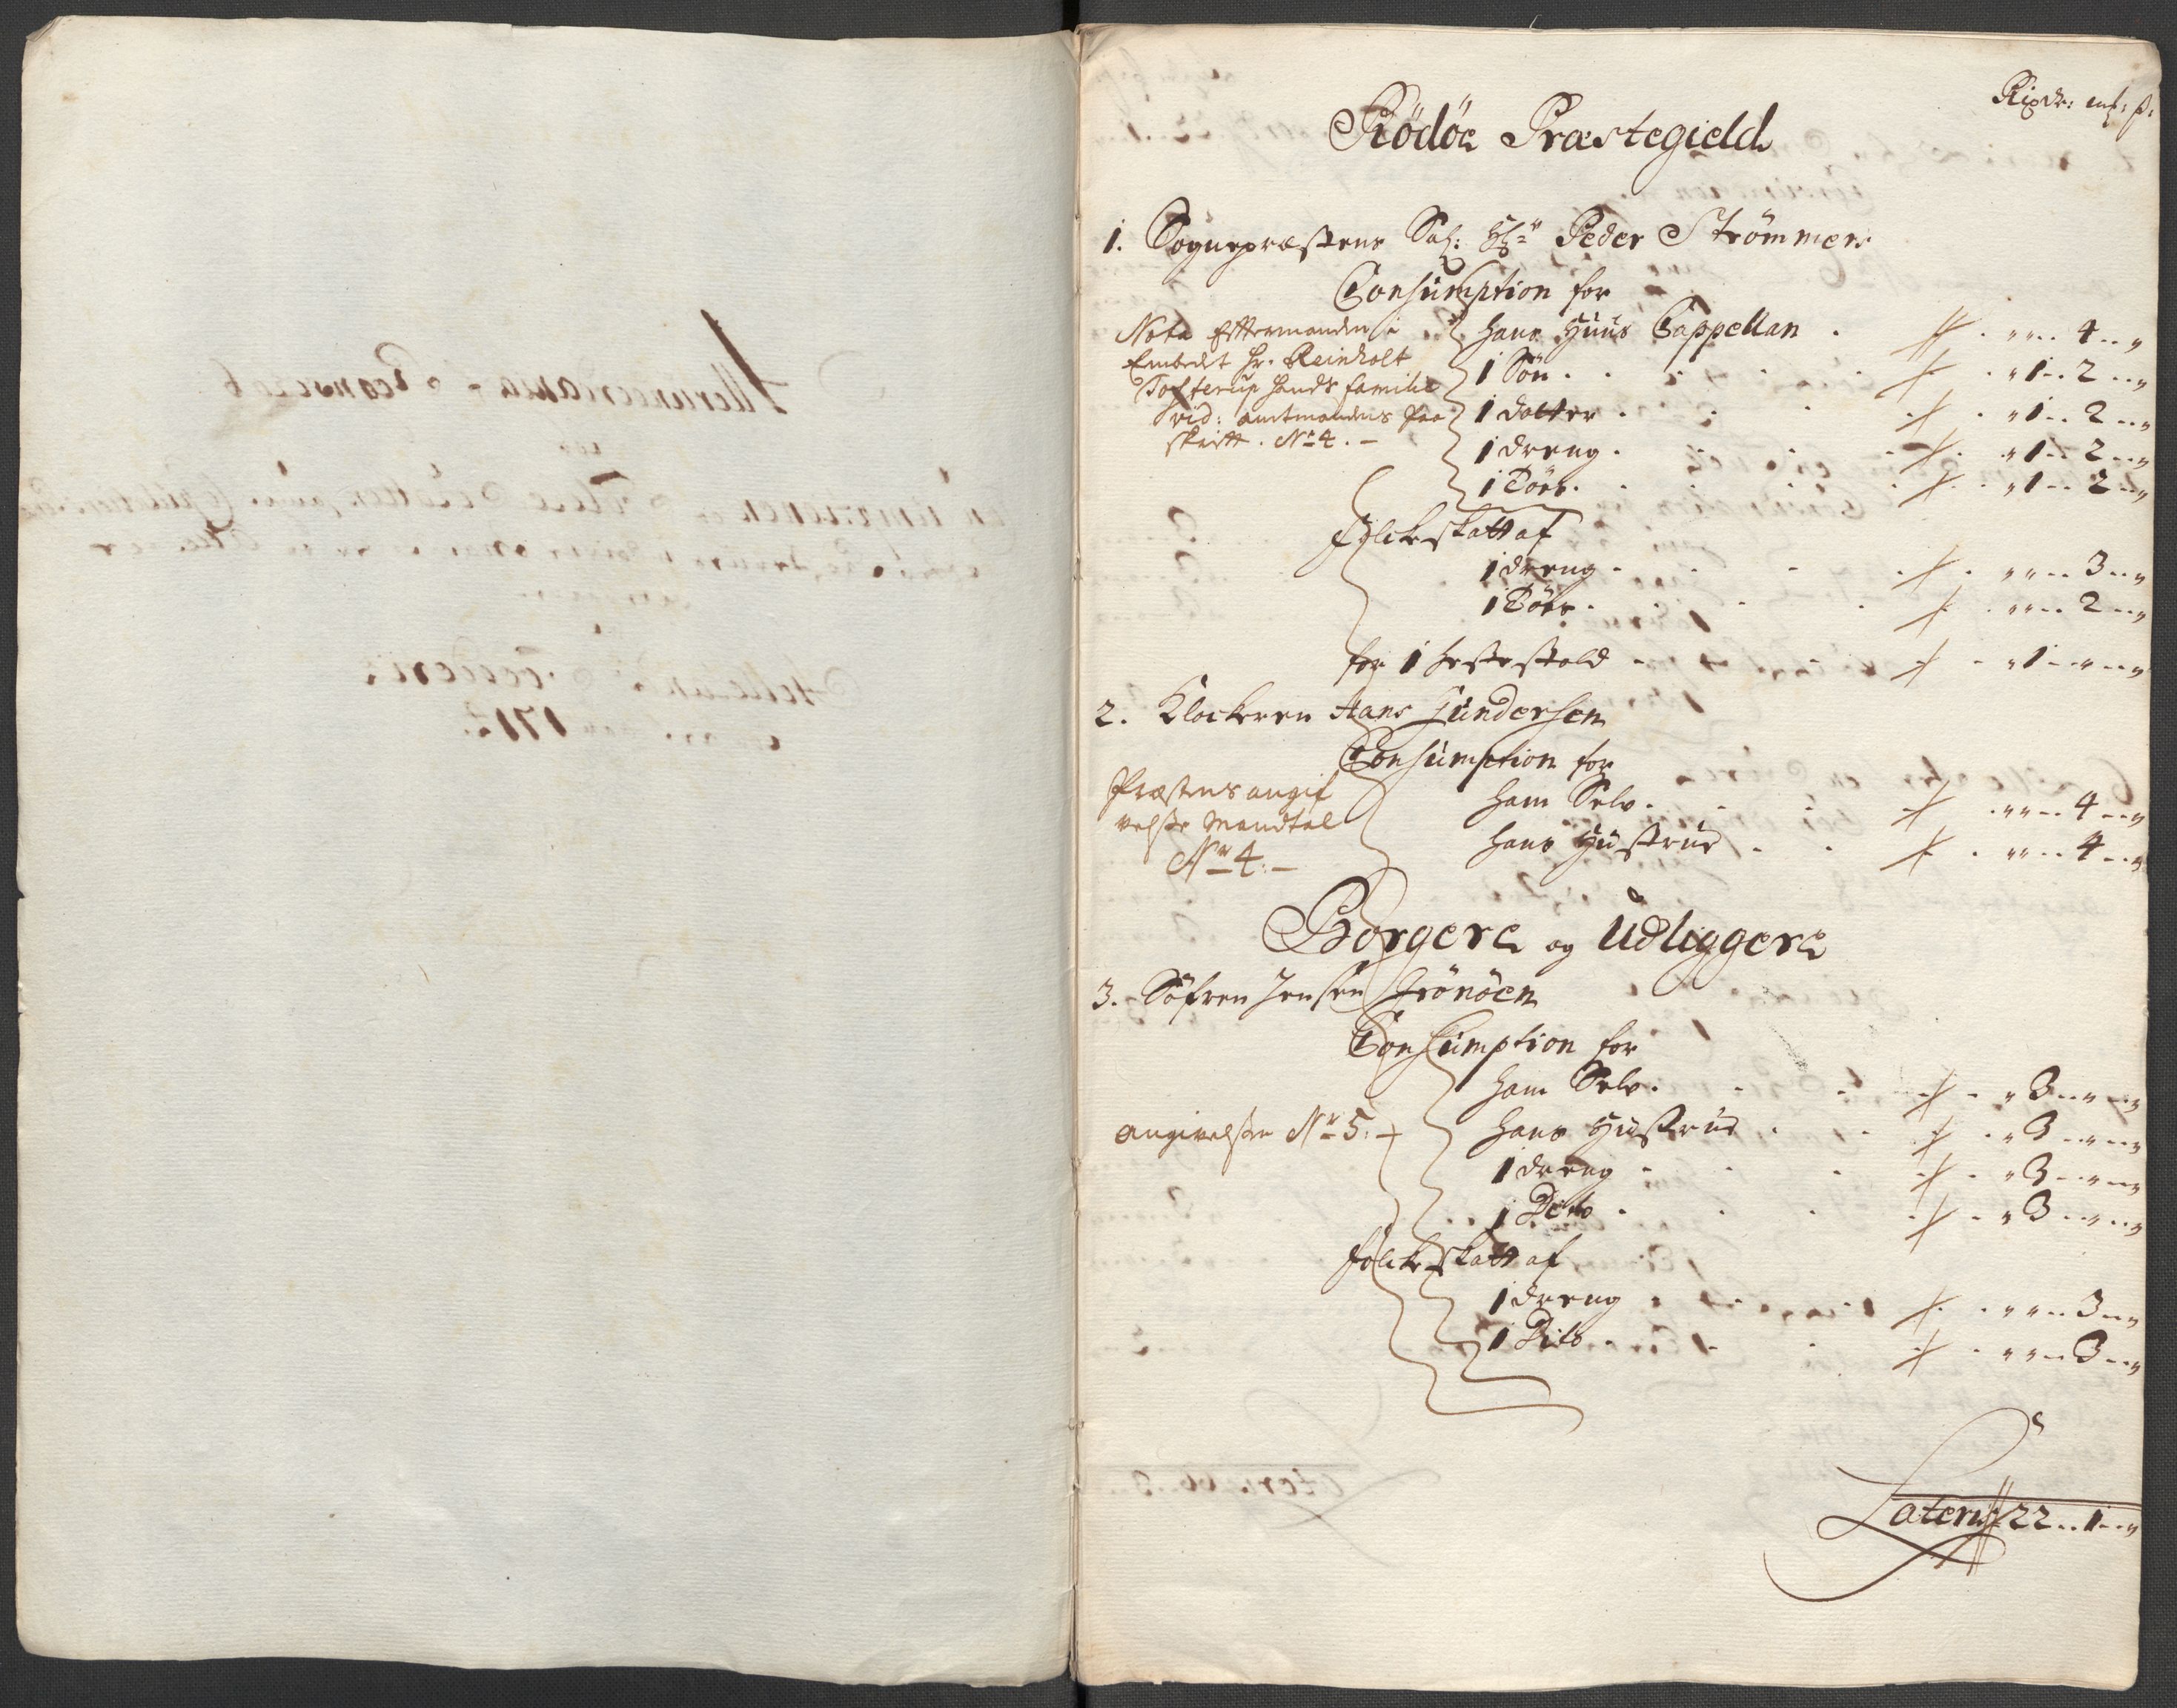 Rixdr: mk: ß:
Rödöe Præstegield
1. Sognepræstens Sal: Hr Peder Strömmers
Consumption for
Nota Efftermanden i
Embedet hr. Reinholt
Tofterup hands familie
vid: amtmandens paa
skrifft. No 4. -
hans Huus Cappellan . 4 ..
1 Sön . . 1 .. 2 ..
1 dotter . 1 .. 2 ..
1 dreng . 1 .. 2 ..
1 Töes . 1 .. 2 ..
folckeskatt af
1 dreng . 3 ..
1 Töes . 2 ..
for 1 hestehold - 1 ..
2. Klockeren Hans Gundersen
Consumption for
Præstens angif
velsse Mandtal
No 4. -
ham Selv . 4 ..
hans Hustrue . 4 ..
Borgere og Udliggere
3. Söfren Jensen Grönöen
Consumption for
ham Selv . 3 ..
angivelsen No 5.
hans Hustrue . 3 ..
1 dreng . 3 ..
1 Dito . 3 ..
folckeskatt af
1 dreng . 3 ..
1 Dito . 3 ..
Lateris 22 .. 1 ..
1712